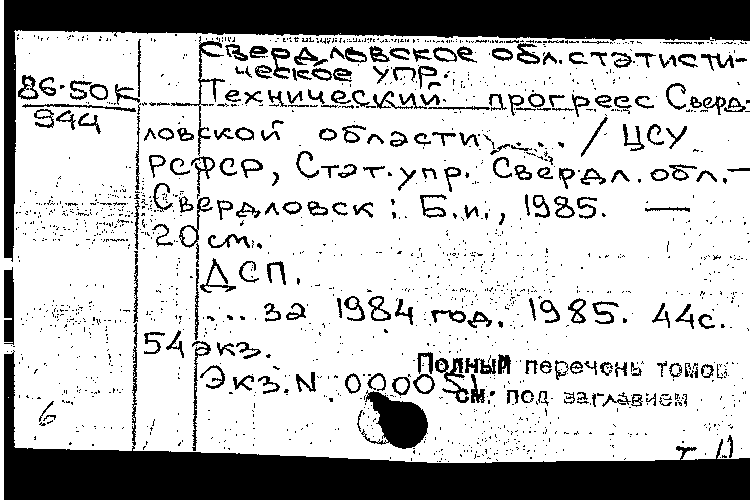 Свердловское обл. статисти-
ческое упр.
86-50к
944
Технический прогресс Сверд-
ловской области ... / ЦСУ
РСФСР, Стат. упр. Свердл. обл. —
Свердловск : Б.и., 1985. —
20 см.
ДСП.
... за 1984 год. 1985. 44с.
54 экз.
Экз. N 000051
Полный перечень томов
см. под заглавием
6